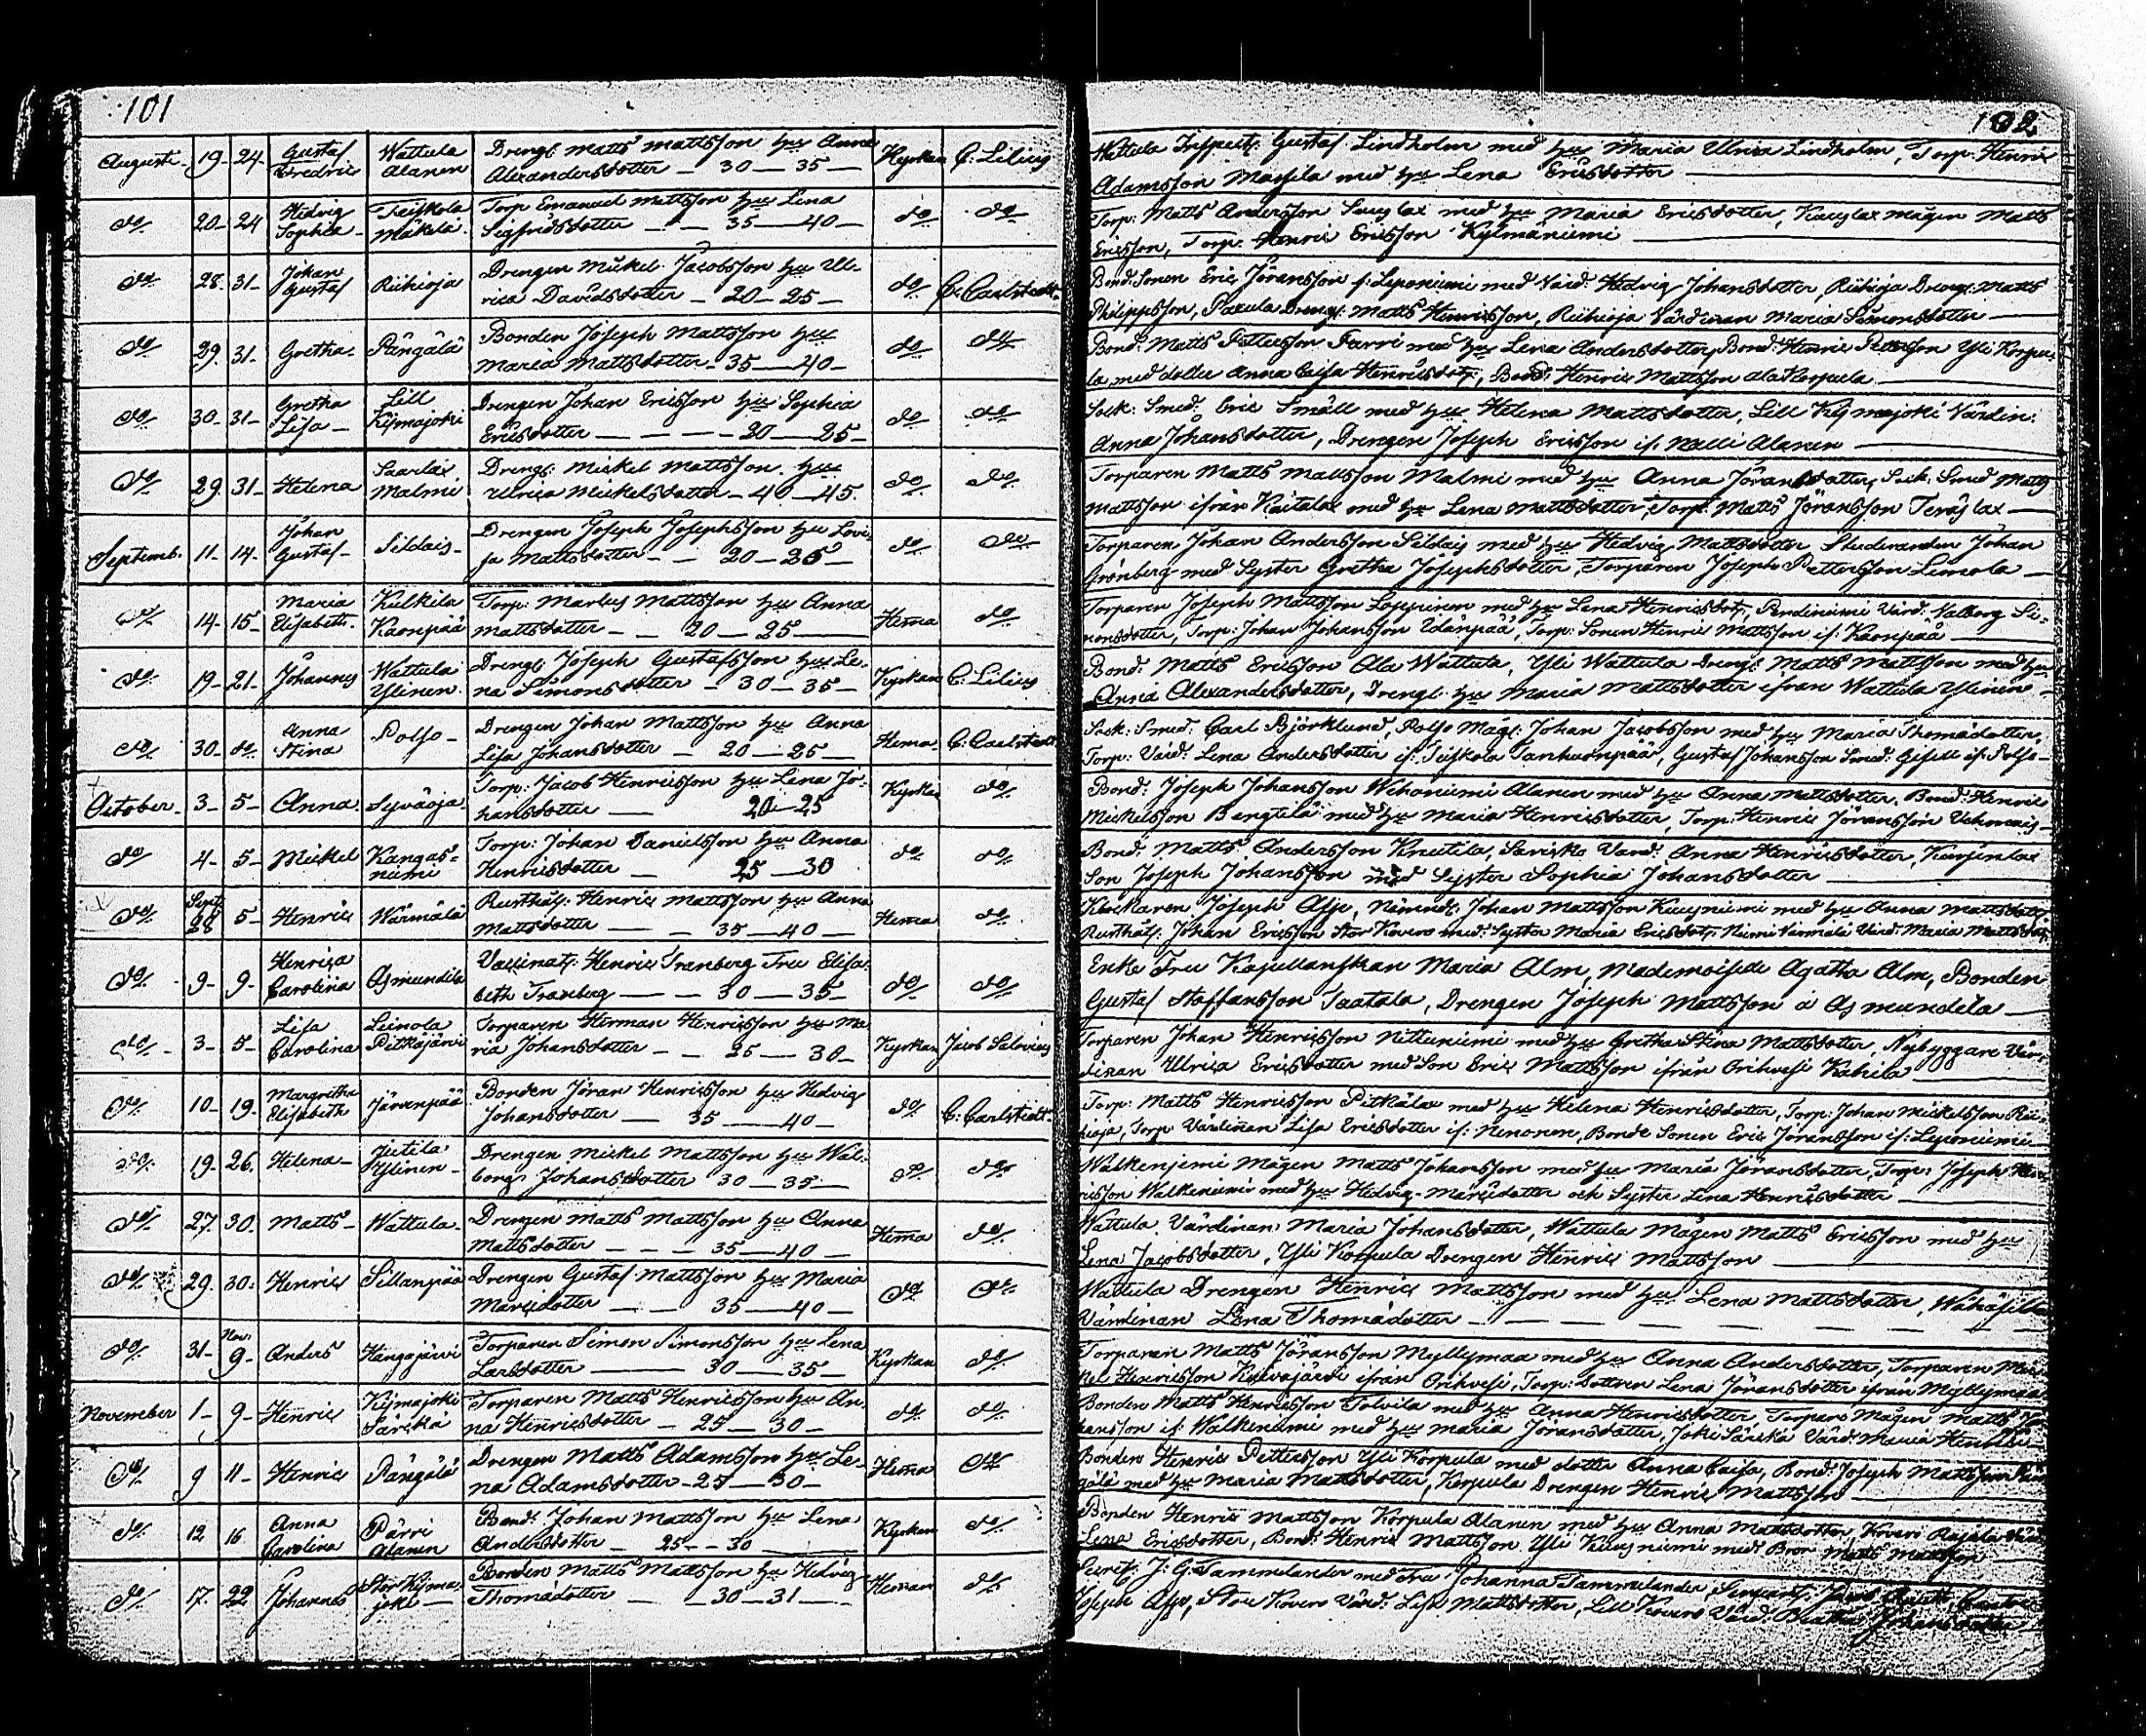 101
Augusti 19 24 Gustaf Fredric Wattula Alanen Drengl. Matts Mattsson hu Anna
Alexandersdotter 30 — 35 Kyrkan C: Lilius
do 20 24 Hedvig Sophia Teiskola Mäkelä Torp Emanuel Mattsson hu Lena
Sigfridsdotter 35 — 40 do do
do 28 31 Johan Gustaf Riihioja Drengen Mickel Jacobsson hu Ul-
rica Davidsdotter 20 — 25 do C: Carlstedt
do 29 31 Gretha Pängälä Bonden Joseph Mattsson hu
Maria Mattsdotter 35 — 40 do do
do 30 31 Gretha Lisa Lill Kijmajoki Drengen Johan Ericsson hu Sophia
Ericsdotter 20 — 25 do do
do 29 31 Helena Saarlax Malmi Drengl: Mickel Mattsson hu
Ulrica Mickelsdotter 40 — 45 do do
Septemb. 11 14 Johan Gustaf Sildais Drengen Joseph Josephsson hu Lovi-
sa Mattsdotter 20 — 25 do do
do 14 15 Maria Elisabeth Kulkila Torp: Markus Mattsson hu Anna
Mattsdotter 20 — 25 Hema do
do 19 21 Johannes Wattula Ylinen Drengl Joseph Gustafsson hu Le-
na Simonsdotter 30 — 35 Kyrkan C: Lilius
do 30 do Anna Stina Polso Drengen Johan Mattsson hu Anna
Lisa Johansdotter 20 — 25 Hema C: Carlstedt
October 3 5 Anna Syväoja Torp: Jacob Henricsson hu Lena Jo-
hansdotter 20 — 25 Kyrka do
do 4 5 Mickel Kangas-niemi Torp: Johan Danielsson hu Anna
Henricsdotter 25 — 30 do do
do Sept. 28 5 Henric Wärmälä Rusthåll: Henric Mattsson hu Anna
Mattsdotter 35 — 40 Hema do
do 9 9 Henrica Carolina Asmundila Vaccinat: Henric Tranberg Fru Elisa-
beth Tranberg 30 — 35 do do
do 3 5 Lisa Carolina Leinola Pitkäjärvi Torparen Herman Henricsson hu Ma-
ria Johansdotter 25 — 30 Kyrkan Jacob Salovius
do 10 19 Margretha Elisabeth Järvenpää Bonden Jöran Henricsson hu Hedvig
Johansdotter 35 — 40 do C: Carlstedt
do 19 26 Helena Jutila Ylinen Drengen Mickel Mattsson hu Wal-
borg Johansdotter 30 — 35 do do
do 27 30 Matts Wattula Drengen Matts Mattsson hu Anna
Mattsdotter 35 — 40 Hema do
do 29 30 Henric Sillanpää Drengen Gustaf Mattsson hu Maria
Marcidotter 35 — 40 do do
do 31 Nov: 9 Anders Hangajärvi Torparen Simon Simonsson hu Lena
Larsdotter 30 — 35 Kyrkan do
November 1 9 Henric Kijmajoki Särkä Torparen Matts Henricsson hu An-
na Henricsdotter 25 — 30 do do
do 9 11 Henric Pängälä Drengen Matts Adamsson hu Le-
na Adamsdotter 25 — 30 Hema do
do 12 16 Anna Carolina Pärri Alanen Bond: Johan Mattsson hu Lena
Andersdotter 25 — 30 Kyrkan do
do 17 22 Johannes Stor Kijma-joki Bonden Matts Mattsson hu Hedvig
Thomadotter 30 — 31 Heman do
102
Wattula Inspect: Gustaf Lindholm med hu Maria Ulrica Lindholm, Torp: Henric
Adamsson med hu Lena Ericsdotter
Torp: Matts Andersson med hu Maria Ericsdotter, mågen Matts
Ericsson, Torp: Henric Ericsson Kylmäniemi
Bond: Sonen Eric Jöransson if: Leponiemi med Värd: Hedvig Johansdotter, Riihioja Dreng: Matts
Philippsson, Paxula Dreng: Matts Henricsson, Riihioja Värdinan Maria Simonsdotter
Bond: Matts Pettersson Parri med hu Lena Andersdotter, Bond: Henric Pettersson Yli Korpu-
la med dotter Anna Caisa Henricsdotr, Bond: Henric Mattsson Ala Korpula
Sock: Smed: Eric Smäll med hu Helena Mattsdotter, Lill Kijmajoki Värdin:
Anna Johansdotter, Drengen Joseph Ericsson if: Alanen
Torparen Matts Mattsson Malmi med hu Anna Jöransdotter, Sock: Smed Matts
Mattsson ifrån Kaitalax med hu Lena Mattsdotter, Torp: Matts Jöransson Teräslax
Torparen Johan Andersson Sildais med hu Hedvig Mattsdotter Studeranden Johan
Grönberg med Syster Gretha Josephsdotter, Torparen Joseph Pettersson Leinola
Torparen Joseph Mattsson med hu Lena Henricsdotr, Värd: Valborg Si-
monsdotter, Torp: Johan Johansson, Torp: Sonen Henric Mattsson if:
Bond: Matts Ericsson Ala Wattula, Yli Wattula Dreng: Matts Mattsson med hu
Anna Alexandersdotter, Drengl: hu Maria Mattsdotter ifrån Wattula Ylinen
Sock: Smed: Carl Björklund, Polso Måg: Johan Jacobsson med hu Maria Thomadotter,
Torp: Värd: Lena Andersdotter if: Teiskola, Gustaf Johansson Smed: Gesell if: Polso
Bond: Joseph Johansson Wehoniemi Alanen med hu Anna Mattsdotter, Bond: Henric
Mickelsson Bengtilä med hu Maria Henricsdotter, Torp: Henric Jöransson
Bond: Matts Andersson Knutila, Värd: Anna Henricsdotter,
Son Joseph Johansson med Syster Sophia Johansdotter
Klockaren Joseph Asp, Nämnd: Johan Mattsson med hu Anna Mattsdotr
Rusthåll: Johan Ericsson Stor Kovero med: Syster Maria Ericsdotr, Niemi Värd: Maria Mattsdotr
Enke Fru Kapellanskan Maria Alm, Mademoiselle Agatha Alm, Bonden
Gustaf Staffansson Taatala, Drengen Joseph Mattsson å Asmundila
Torparen Johan Henricsson med hu Gretha Stina Mattsdotter, Nybyggare Vär-
dinan Ulrica Ericsdotter med Son Eric Mattsson ifrån Orihvesi
Torp: Matts Henricsson Pitkälax med hu Helena Henricsdotter, Torp: Johan Mickelsson Rii-
hioja, Torp: Värdinan Lisa Ericsdotter if: Nenonen, Bonde Sonen Eric Jöransson if: Leponiemi
Walkeniemi Mågen Matts Johansson med hu Maria Jöransdotter, Torp: Joseph Hen-
ricsson Walkeniemi med hu Hedvig Marcidotter och Syster Lena Henricsdotter
Wattula Värdinan: Maria Johansdotter, Wattula Mågen Matts Ericsson med hu
Lena Jacobsdotter, Yli Korpula Drengen Henric Mattsson
Wattula Drengen Henric Mattsson med hu Lena Mattsdotter,
Värdinan Lena Thomadotter
Torparen Matts Jöransson Myllymaa med hu Anna Andersdotter, Torparen Mic-
kel Henricsson ifrån Orihvesi, Torp: dottren Lena Jöransdotter ifrån Myllymaa
Bonden Matts Henricsson Tolvila med hu Anna Henricsdotter, Torpare Mågen Matts Jo-
hansson if: Walkeniemi med hu Maria Jöransdotter, Joki Särkä Värd: Maria
Bonden Henric Pettersson Yli Korpula med dotter Anna Caisa, Bond: Joseph Mattsson Pän-
gälä med hu Maria Mattsdotter, Korpula Drengen Henric Mattsson
Bonden Henric Mattsson Korpula Alanen med hu Anna Mattsdotter,
Lena Ericsdotter, Bond: Henric Mattsson Yli med Bror Matts Mattsson
Secret: J: G: Tammelander med Fru Johanna Tammelander,
Joseph Asp, Stor Kovero Värd: Lisa Mattsdotter, Lill Kovero Värd: Beatha Johansdotter